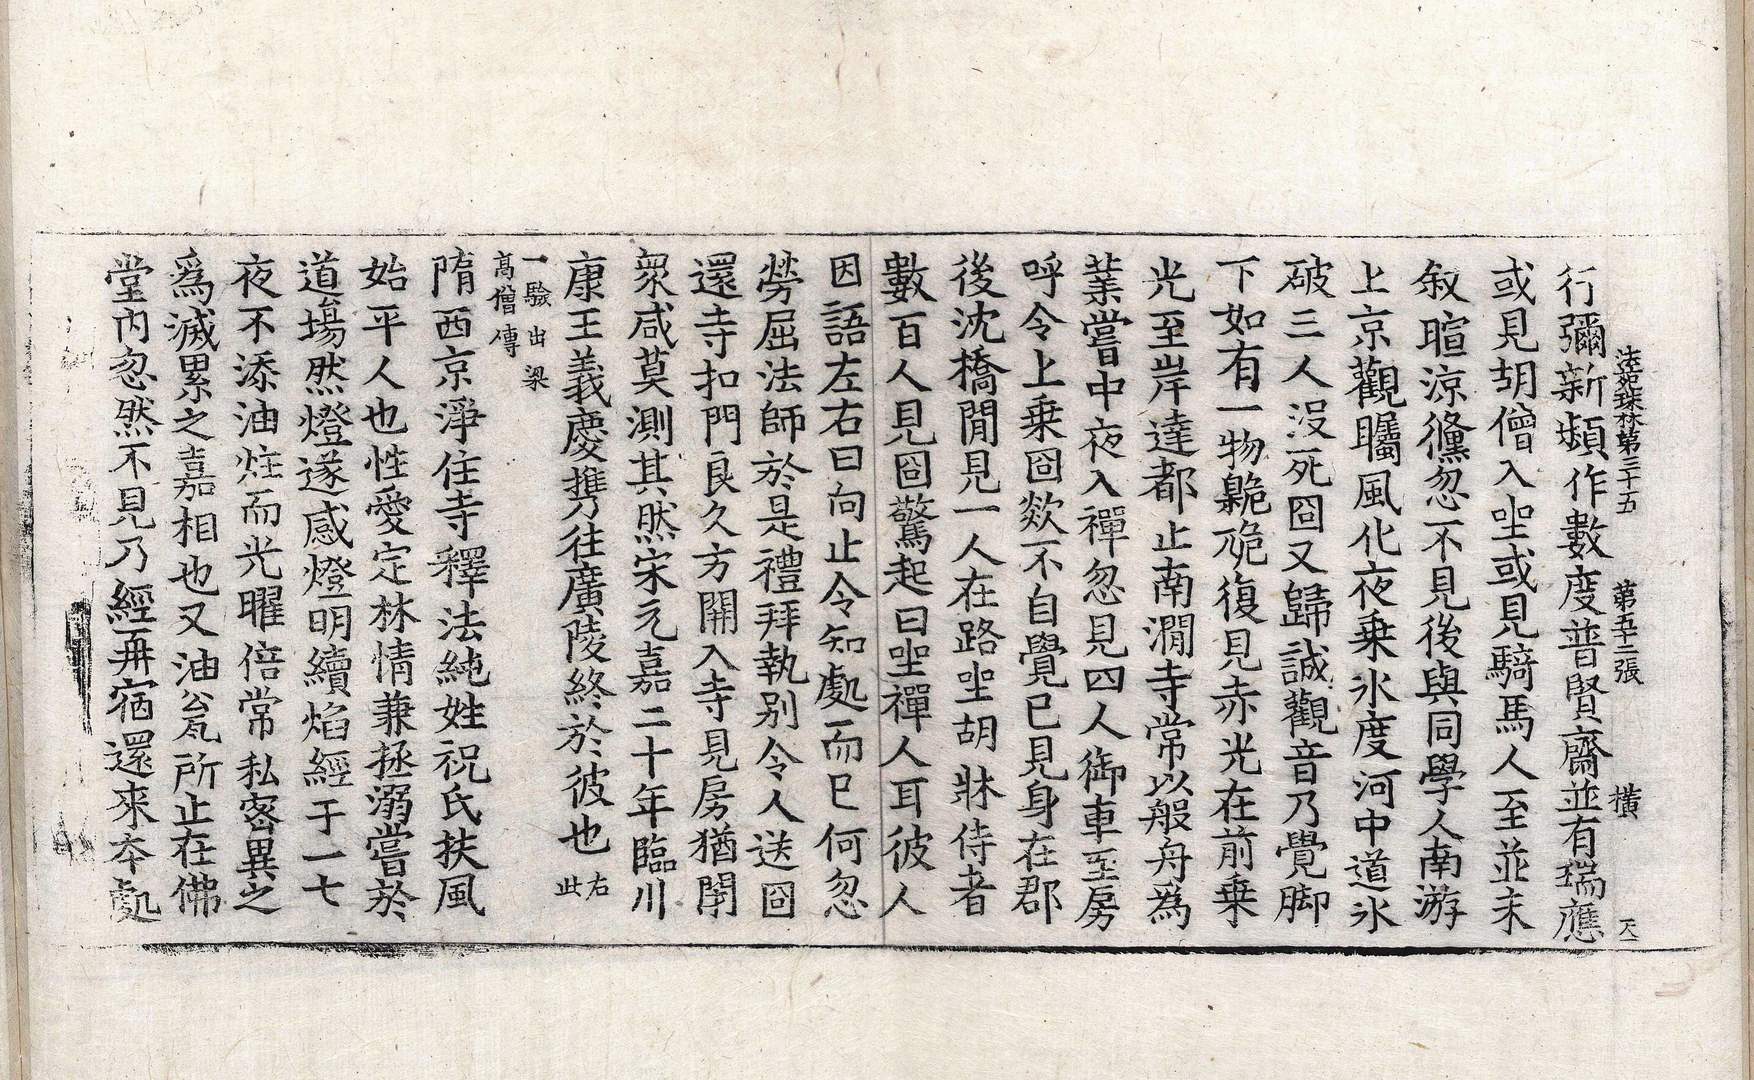 法苑珠林第三十五 第五十二張 橫 天
行彌新頻作數度普賢齋並有瑞應
或見胡僧入坐或見騎馬人至並未
叙暄涼儵忽不見後與同學人南游
上京觀矚風化夜乗氷度河中道氷
破三人沒死冏又歸誠觀音乃覺脚
下如有一物㚄㞃復見赤光在前乗
光至岸達都止南澗寺常以般舟爲
業嘗中夜入禪忽見四人御車至房
呼令上乗冏欻不自覺已見身在郡
後沈橋閒見一人在路坐胡牀侍者
數百人見冏驚起曰坐禪人耳彼人
因語左右曰向止令知處而已何忽
勞屈法師於是禮拜執别令人送冏
還寺扣門良久方開入寺見房猶閇
衆咸莫測其然宋元嘉二十年臨川
康王義慶携乃往廣陵終於彼也右此
一驗出梁
高僧傳
隋西京淨住寺釋法純姓祝氏扶風
始平人也性愛定林情兼拯溺嘗於
道塲然燈遂感燈明續焰經于一七
夜不添油炷而光曜倍常私密異之
爲滅累之嘉相也又油瓮所止在佛
堂内忽然不見乃經再宿還來夲處